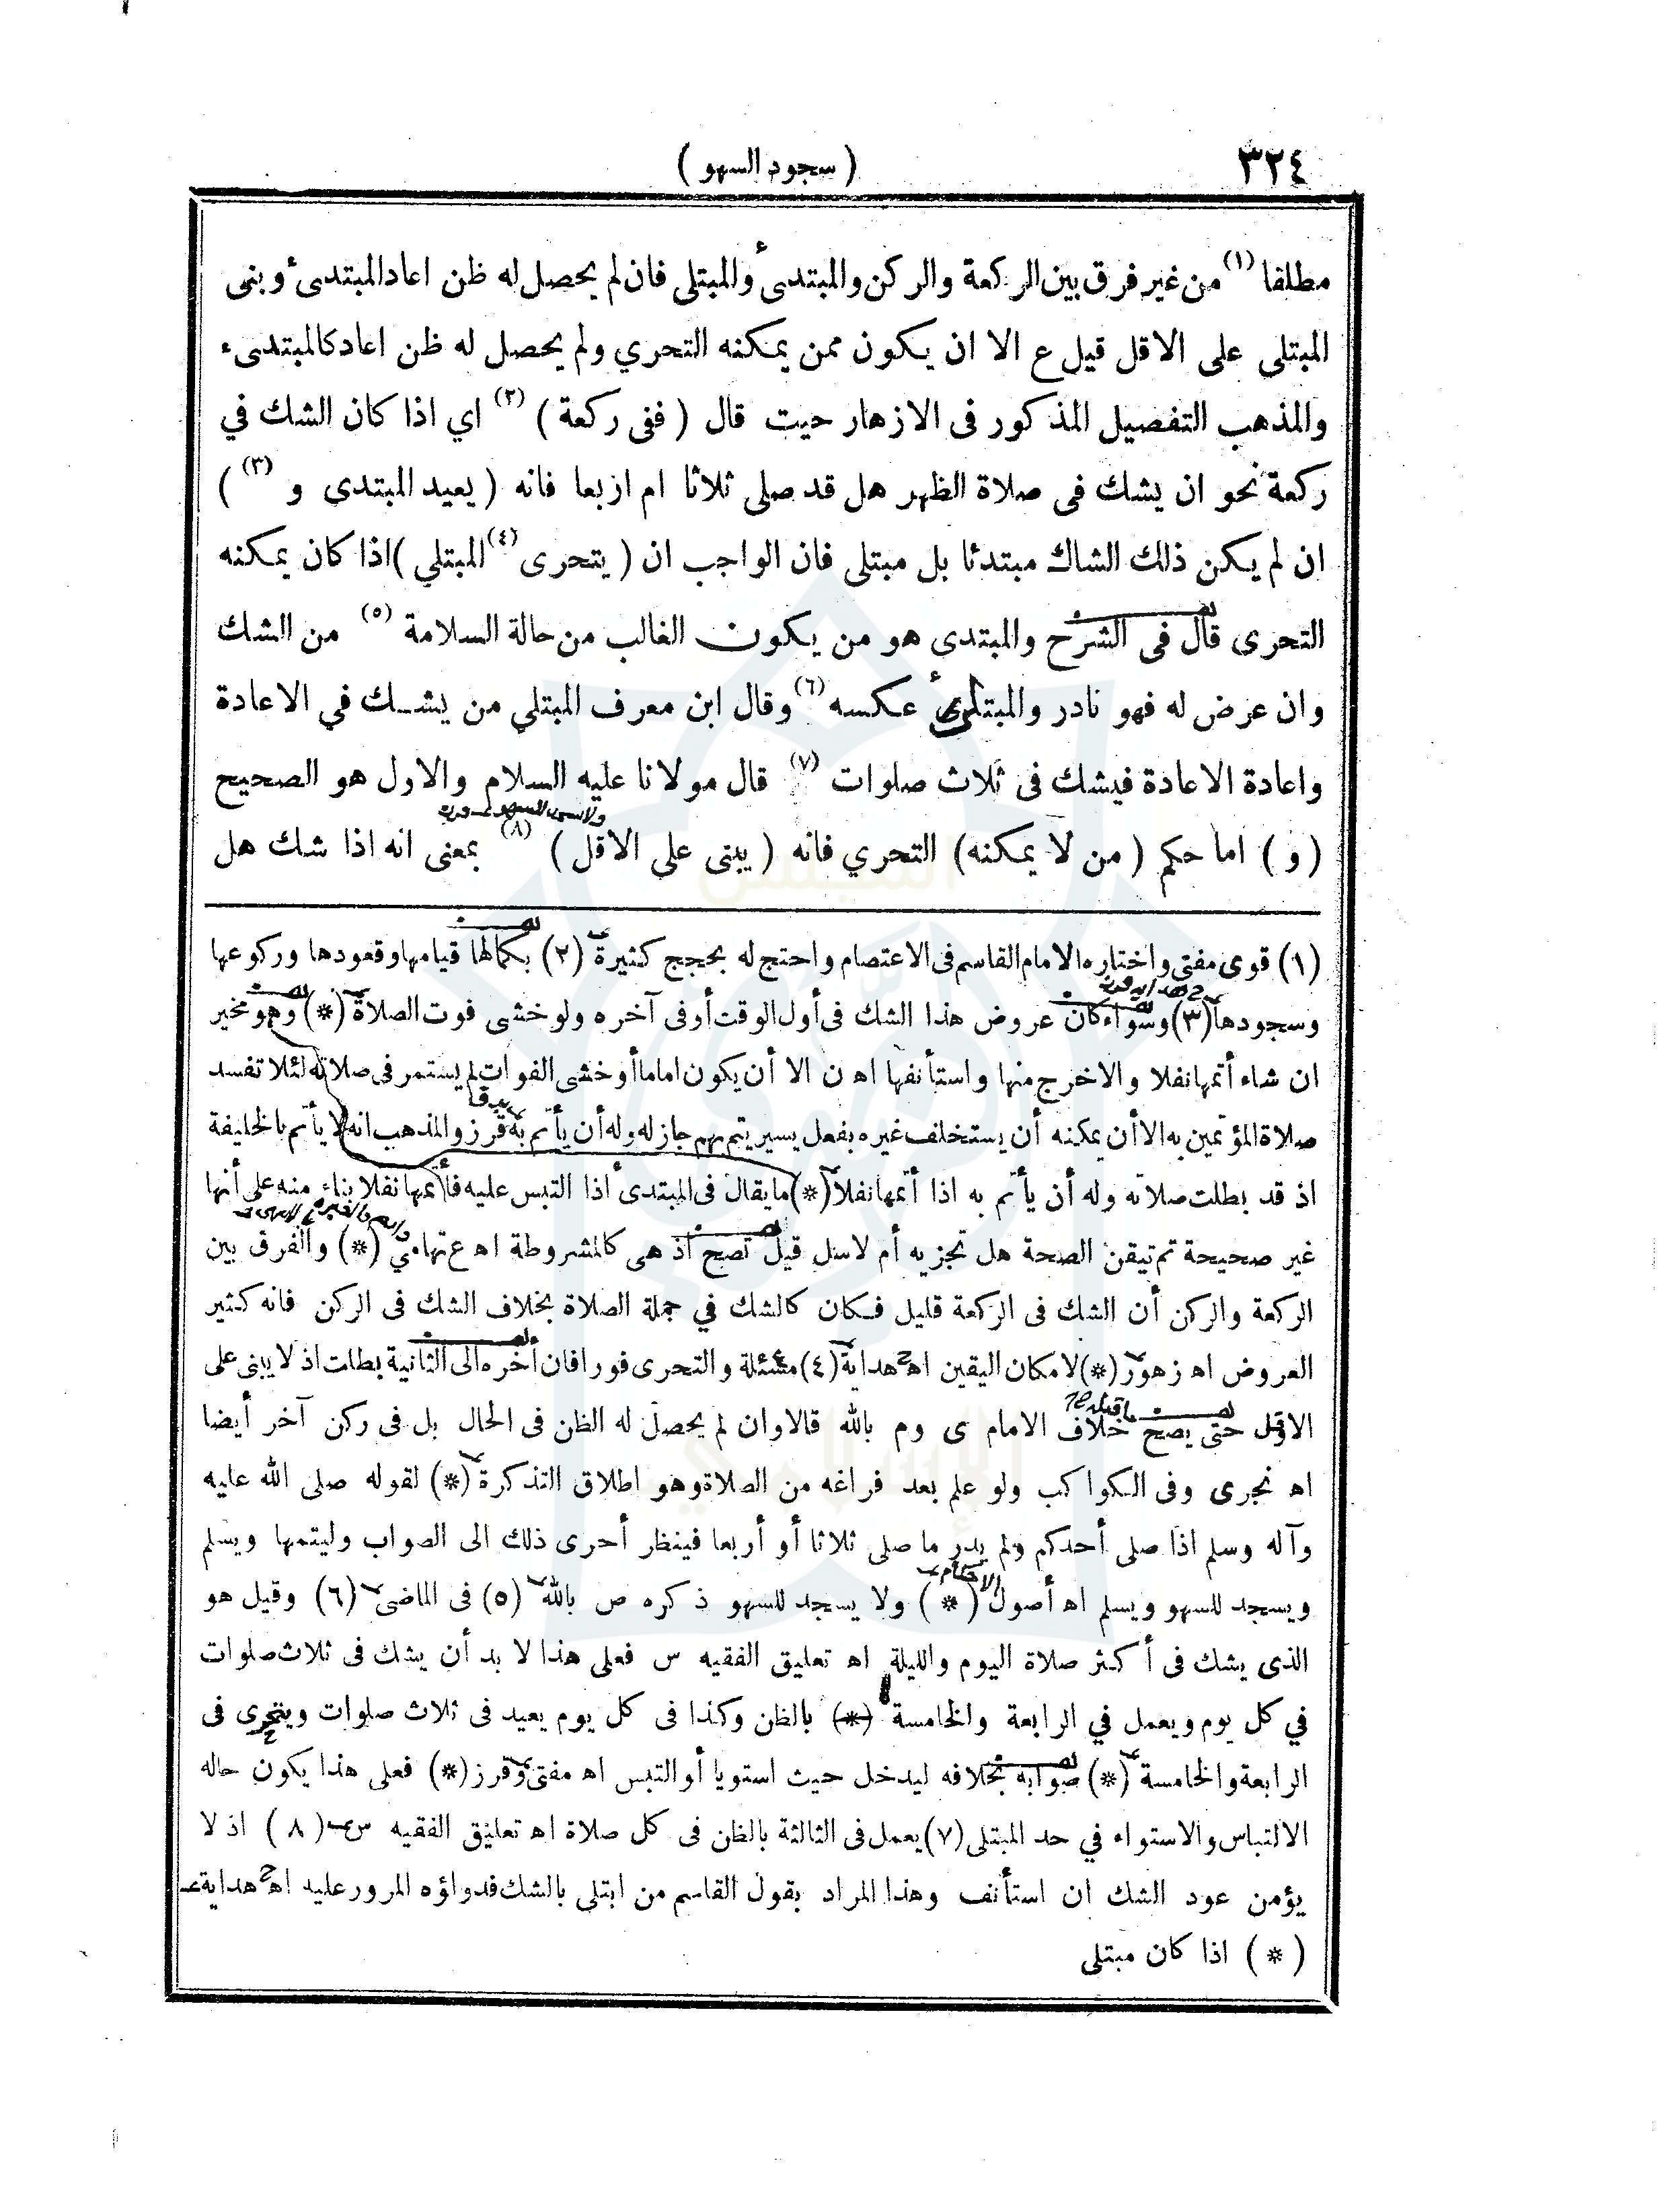 ٣٢٤
( سجود السهو )
مطلقا (١) من غير فرق بين الركعة والركن والمبتدئ والمبتلى فان لم يحصل له ظن اعاد المبتدىء وبنى
المبتلى على الاقل قيل ع الا ان يكون ممن يمكنه التحري ولم يحصل له ظن اعاد كالمبتدىء
والمذهب التفصيل المذكور فى الازهار حيث قال ( ففى ركعة ) (٢) اي اذا كان الشك في
ركعة نحو ان يشك فى صلاة الظهر هل قد صلى ثلاثا ام اربعا فانه ( يعيد المبتدى و (٣) )
ان لم يكن ذلك الشاك مبتدئا بل مبتلى فان الواجب ان ( يتحرى (٤) المبتلي ) اذا كان يمكنه
التحرى قال فى الشرح والمبتدى هو من يكون الغالب من حالة السلامة (٥) من الشك
وان عرض له فهو نادر والمبتلى عكسه (٦) وقال ابن معرف المبتلي من يشك في الاعادة
واعادة الاعادة فيشك فى ثلاث صلوات (٧) قال مولانا عليه السلام والاول هو الصحيح
( و ) اما حكم ( من لا يمكنه ) التحري فانه ( يبنى على الاقل ) (٨) بمعنى انه اذا شك هل
(١) قوى مفتي واختاره الامام القاسم فى الاعتصام واحتج له بحجج كثيرة (٢) بكمالها قيامها وقعودها وركوعها
وسجودها (٣) وسواء كان عروض هذا الشك فى أول الوقت أو فى آخره ولو خشى فوت الصلاة (*) وهو مخير
ان شاء أتمها نفلا والا خرج منها واستأنفها اه ن الا أن يكون اماما أو خشى الفوات لم يستمر فى صلاته لئلا تفسد
صلاة المؤتمين به الا أن يمكنه أن يستخلف غيره بفعل يسير يتم بهم جاز له وله أن يأتم به قرز والمذهب انه لا يأتم بالخليفة
اذ قد بطلت صلاته وله أن يأتم به اذا أتمها نفلا (*) ما يقال فى المبتدى أذا التبس عليه فأتمها نفلا بناء منه على أنها
غير صحيحة ثم تيقن الصحة هل تجزيه أم لا سل قيل تصح اذ هى كالمشروطة اه ع تهامي (*) والفرق بين
الركعة والركن أن الشك فى الركعة قليل فكان كالشك في جملة الصلاة بخلاف الشك فى الركن فانه كثير
العروض اه زهور (*) لامكان اليقين اه هداية (٤) مسئلة والتحرى فورا فان أخره الى الثانية بطلت اذ لا يبنى على
الاقل حتى يصح خلاف الامام ى وم بالله قالا وان لم يحصل له الظن فى الحال بل فى ركن آخر أيضا
اه نجرى وفى الكواكب ولو علم بعد فراغه من الصلاة وهو اطلاق التذكرة (*) لقوله صلى الله عليه
وآله وسلم اذا صلى أحدكم ولم يدر ما صلى ثلاثا أو أربعا فينظر أحرى ذلك الى الصواب وليتمها ويسلم
ويسجد للسهو ويسلم اه أصول (*) ولا يسجد للسهو ذكره ص بالله (٥) فى الماضى (٦) وقيل هو
الذى يشك فى أكثر صلاة اليوم والليلة اه تعليق الفقيه س فعلى هذا لا بد أن يشك فى ثلاث صلوات
في كل يوم ويعمل في الرابعة والخامسة (*) بالظن وكذا فى كل يوم يعيد فى ثلاث صلوات ويتحرى فى
الرابعة والخامسة (*) صوابه بخلافه ليدخل حيث استويا أو التبس اه مفتى وقرز (*) فعلى هذا يكون حاله
الالتباس والاستواء في حد المبتلى (٧) يعمل فى الثالثة بالظن فى كل صلاة اه تعليق الفقيه س (٨) اذ لا
يؤمن عود الشك ان استأنف وهذا المراد بقول القاسم من ابتلى بالشك فدواؤه المرور عليه اه هداية
(*) اذا كان مبتلى